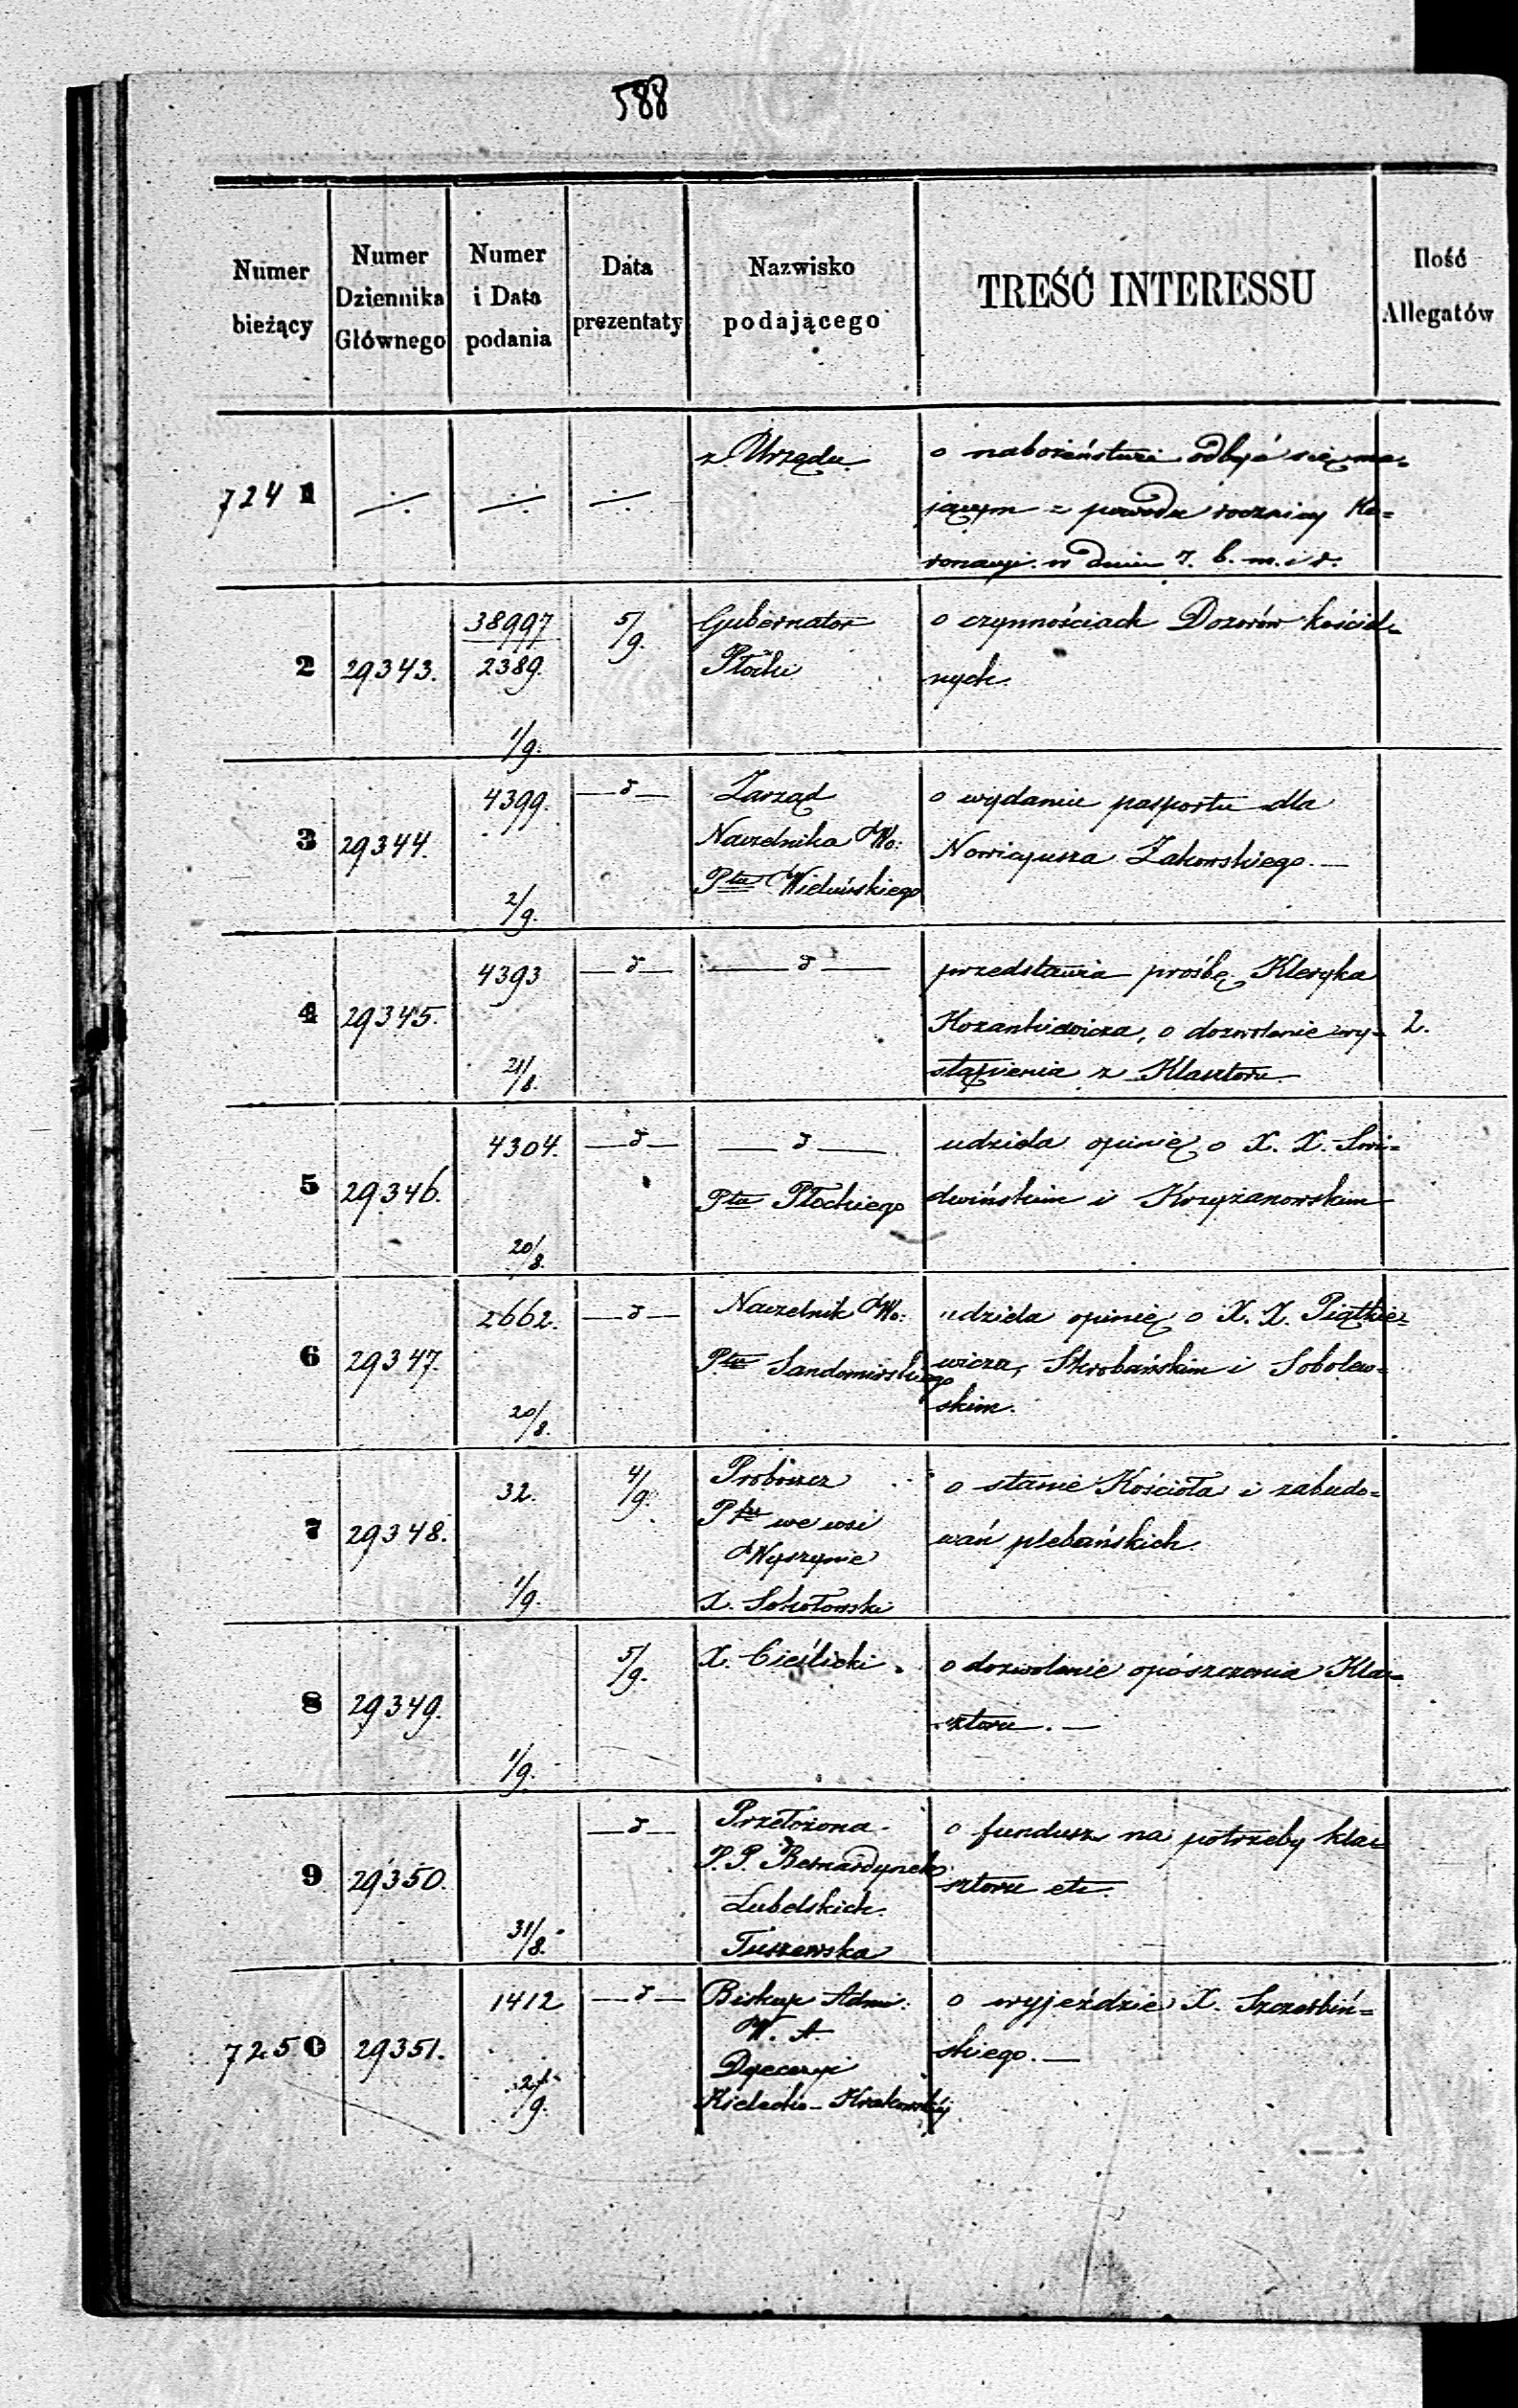 588
Numer bieżący
Numer Dziennika Głównego
Numer i Data podania
Data prezentaty
Nazwisko podającego
TREŚĆ INTERESSU
Ilość Allegatów
7241 ÷ ÷ ÷ z Urzędu
o nabożeństwie odbyć się ma=
jącym z powodu rocznicy Ko=
ronacyi w dniu 7. b. m. i r.
2 29343. 38997/2389. 1/9. 5/9. Gubernator
Płocki
o czynnościach Dozorów kościel=
nych.
3 29344. 4399. 2/9. —d— Zarząd
Naczelnika Wo:
Ptu Wieluńskiego
o wydanie pasportu dla
Nowicyusza Żakowskiego.—
4 29345. 4393 21/8. —d— —d—
przedstawia prośbę Kleryka
Kozankiewicza, o dozwolenie wy=
stąpienia z Klasztoru.
2.
5 29346. 4304. 20/8. —d— —d—
Ptu Płockiego
udziela opinię o X. X. Swi=
dwińskim i Krzyżanowskim
6 29347. 2662. 20/8. —d— Naczelnik Wo:
Ptu Sandomirskiego
udziela opinię o X. X. Piątkie=
wicza, Skrobańskim i Sobolew=
skim.
7 29348. 32. 1/9. 4/9. Proboszcz
Ptu we wsi
Wyszynie
X. Sokołowski
o stanie Kościoła i zabudo=
wań plebańskich.
8 29349. 1/9. 5/9. X. Cieślicki.
o dozwolenie opószczenia Kla=
sztoru.—
9 29350. 31/8. —d— Przełożona
P.P. Bernardynek
Lubelskich.
Tuszewska
o fundusz na potrzeby kla=
sztoru etc.
7250 29351. 1412 2/9. —d— Biskup Adm:
W. A.
Dyecezyi
Kielecko-Krakowskiéj
o wyjeździe X. Szczerbiń=
skiego.—